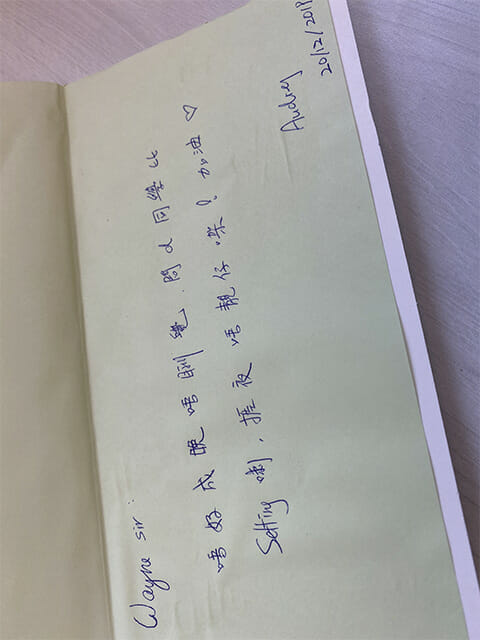 Wayne sir:
唔好成晚唔瞓覺，問d同學比
Setting喇，捱夜唔靚仔㗎！加油♡
Audrey
20/12/2019